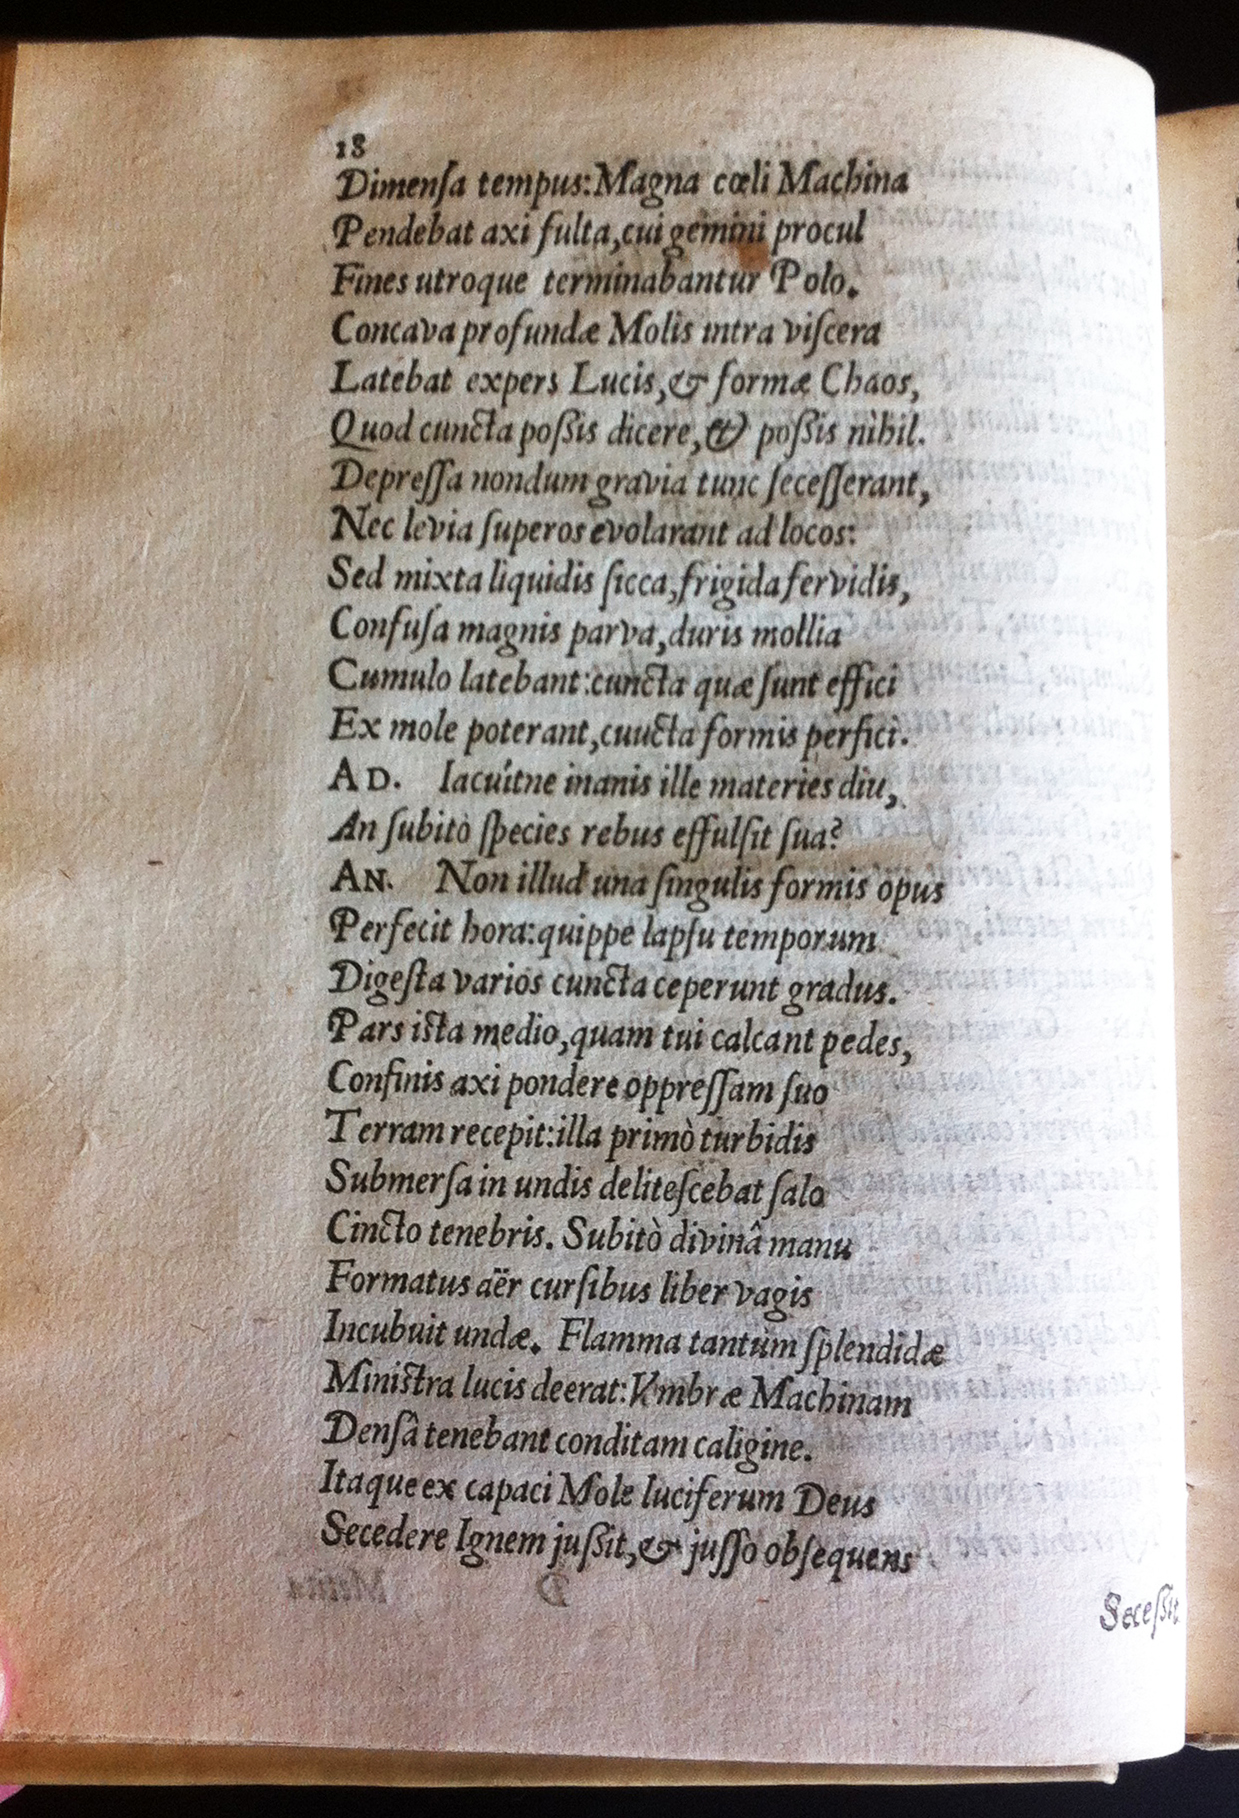 18
Dimenſa tempus:Magna cœli Machina
Pendebat axi fulta,cui gemini procul
Fines utroque terminabantur Polo.
Concava profundæ Molis intra viſcera
Latebat expers Lucis,& formæ Chaos,
Quod cuncta poſsis dicere,& poſsis nihil.
Depreſſa nondum gravia tunc ſeceſſerant,
Nec levia ſuperos evolarant ad locos:
Sed mixta liquidis ſicca,frigida fervidis,
Confuſa magnis parva,duris mollia
Cumulo latebant:cuncta quæ ſunt effici
Ex mole poterant,cuucta formis perfici.
AD. Iacuitne inanis ille materies diu,
An ſubitò ſpecies rebus effulſit ſua?
AN. Non illud una ſingulis formis opus
Perfecit hora:quippe lapſu temporum
Digeſta varios cuncta ceperunt gradus.
Pars iſta medio,quam tui calcant pedes,
Confinis axi pondere oppreſſam ſuo
Terram recepit:illa primò turbidis
Submerſa in undis deliteſcebat ſalo
Cincto tenebris. Subitò divinâ manu
Formatus aër curſibus liber vagis
Incubuit undæ. Flamma tantùm ſplendidæ
Miniſtra lucis deerat:Vmbræ Machinam
Denſâ tenebant conditam caligine.
Itaque ex capaci Mole luciferum Deus
Secedere Ignem juſsit,& juſſo obſequens
Seceſsit